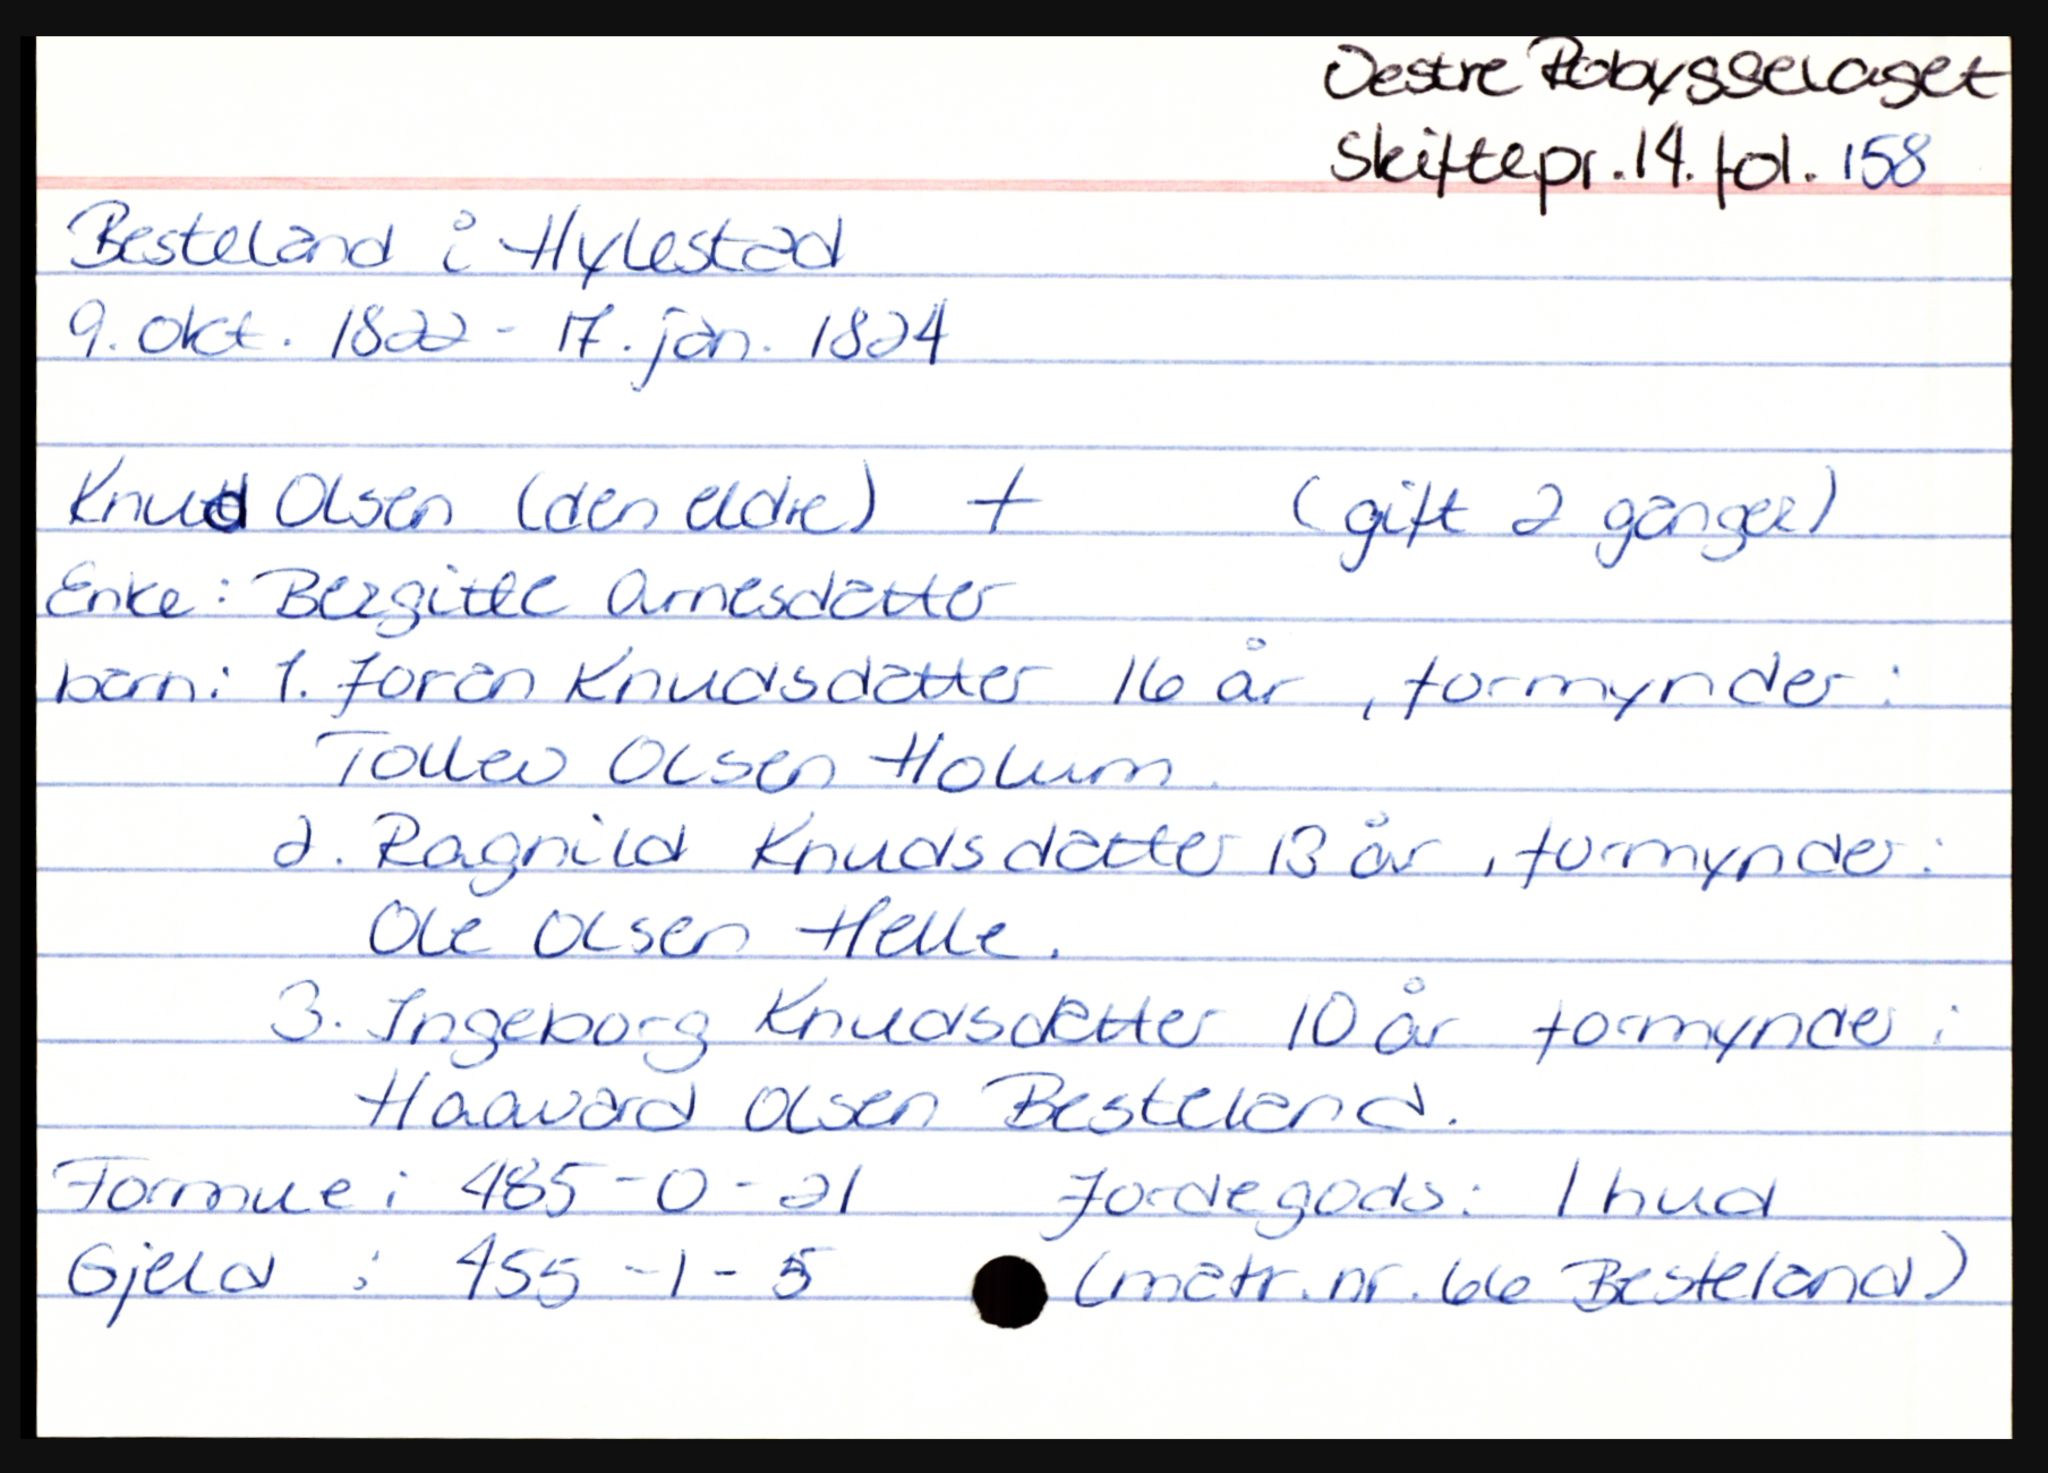 Vestre Robyggelaget
Skiftepr. 14. fol. 158
Besteland i Hylestad
9. okt. 1822 - 17. jan. 1824
Knud Olsen (den eldre) + (gift 2 ganger)
Enke: Bergitte Arnesdatter
barn: 1. Joran Knudsdatter 16 år, formynder:
Tollev Olsen Holum.
2. Ragnild Knudsdatter 13 år, formynder:
Ole Olsen Helle.
3. Ingeborg Knudsdatter 10 år formynder:
Haavard Olsen Besteland.
Formue: 485-0-21 Jordegods: 1 hud
Gjeld: 455-1-5 (matr. nr. 66 Besteland)